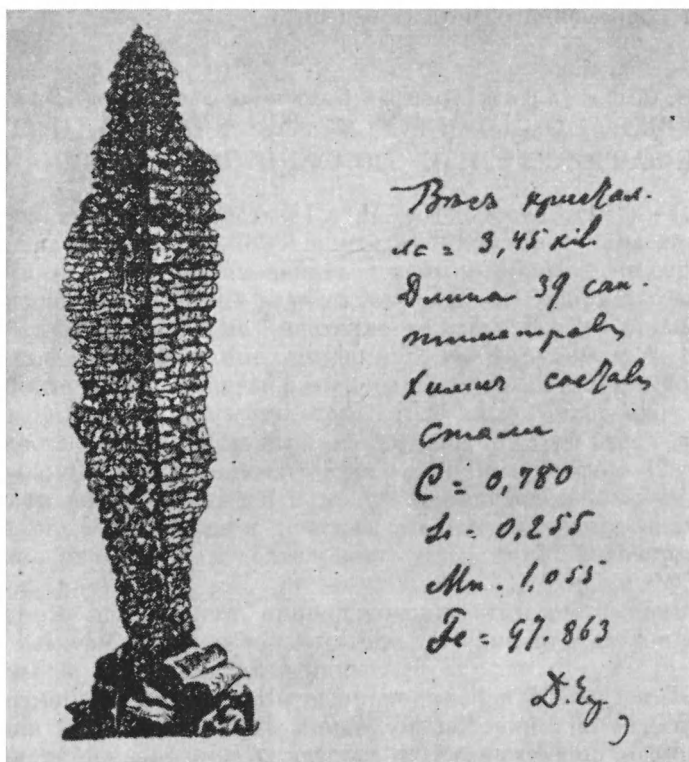 Вѣсъ кристал.
ла = 3,45 kil.
Длина 39 сан.
тиметровъ
Химич составъ
Стали
C = 0,780
Si - 0,255
Mn - 1,055
Fe = 97.863